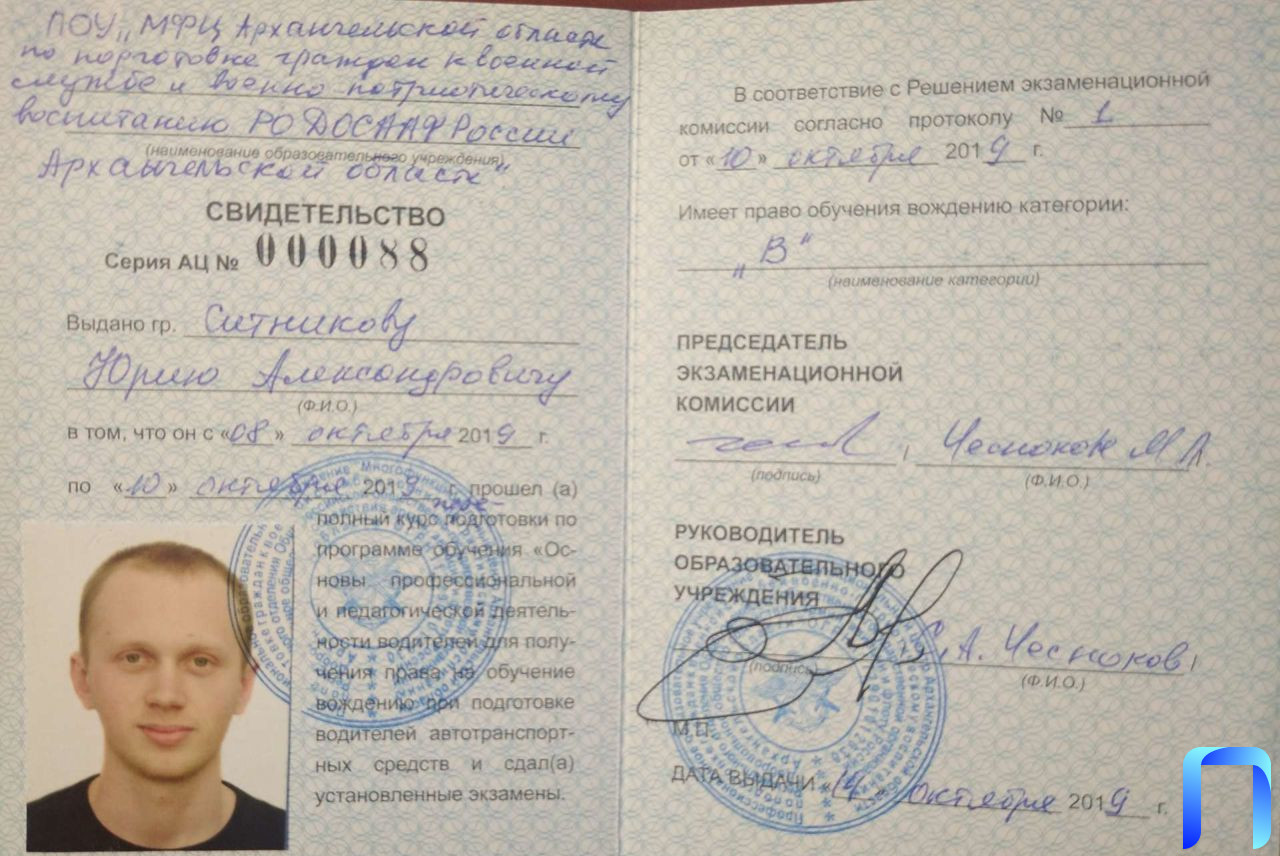 ПОУ „МФЦ Архангельской области
по порготовке граждан к военной
службе и военно патриотическому
воспитанию РО ДОСААФ России
(наименование образовательного учреждения)
Архангельской области“
СВИДЕТЕЛЬСТВО
Серия АЦ № 000088
Выдано гр. Ситникову
Юрию Александровичу
(Ф.И.О.)
в том, что он с «08» октября 2019 г.
по «10» октября 2019 г. прошел (а)
полный курс подготовки по
программе обучения «Ос-
новы профессиональной
и педагогической деятель-
ности водителей для полу-
чения права на обучение
вождению при подготовке
водителей автотранспорт-
ных средств и сдал(а)
установленные экзамены.
В соответствие с Решением экзаменационной
комиссии согласно протоколу № 1
от «10» октября 2019 г.
Имеет право обучения вождению категории:
„В“
(наименование категории)
ПРЕДСЕДАТЕЛЬ
ЭКЗАМЕНАЦИОННОЙ
КОМИССИИ
(подпись) (Ф.И.О.)
РУКОВОДИТЕЛЬ
ОБРАЗОВАТЕЛЬНОГО
УЧРЕЖДЕНИЯ
А. Чесноков
(подпись) (Ф.И.О.)
М.П.
ДАТА ВЫДАЧИ октября 2019 г.